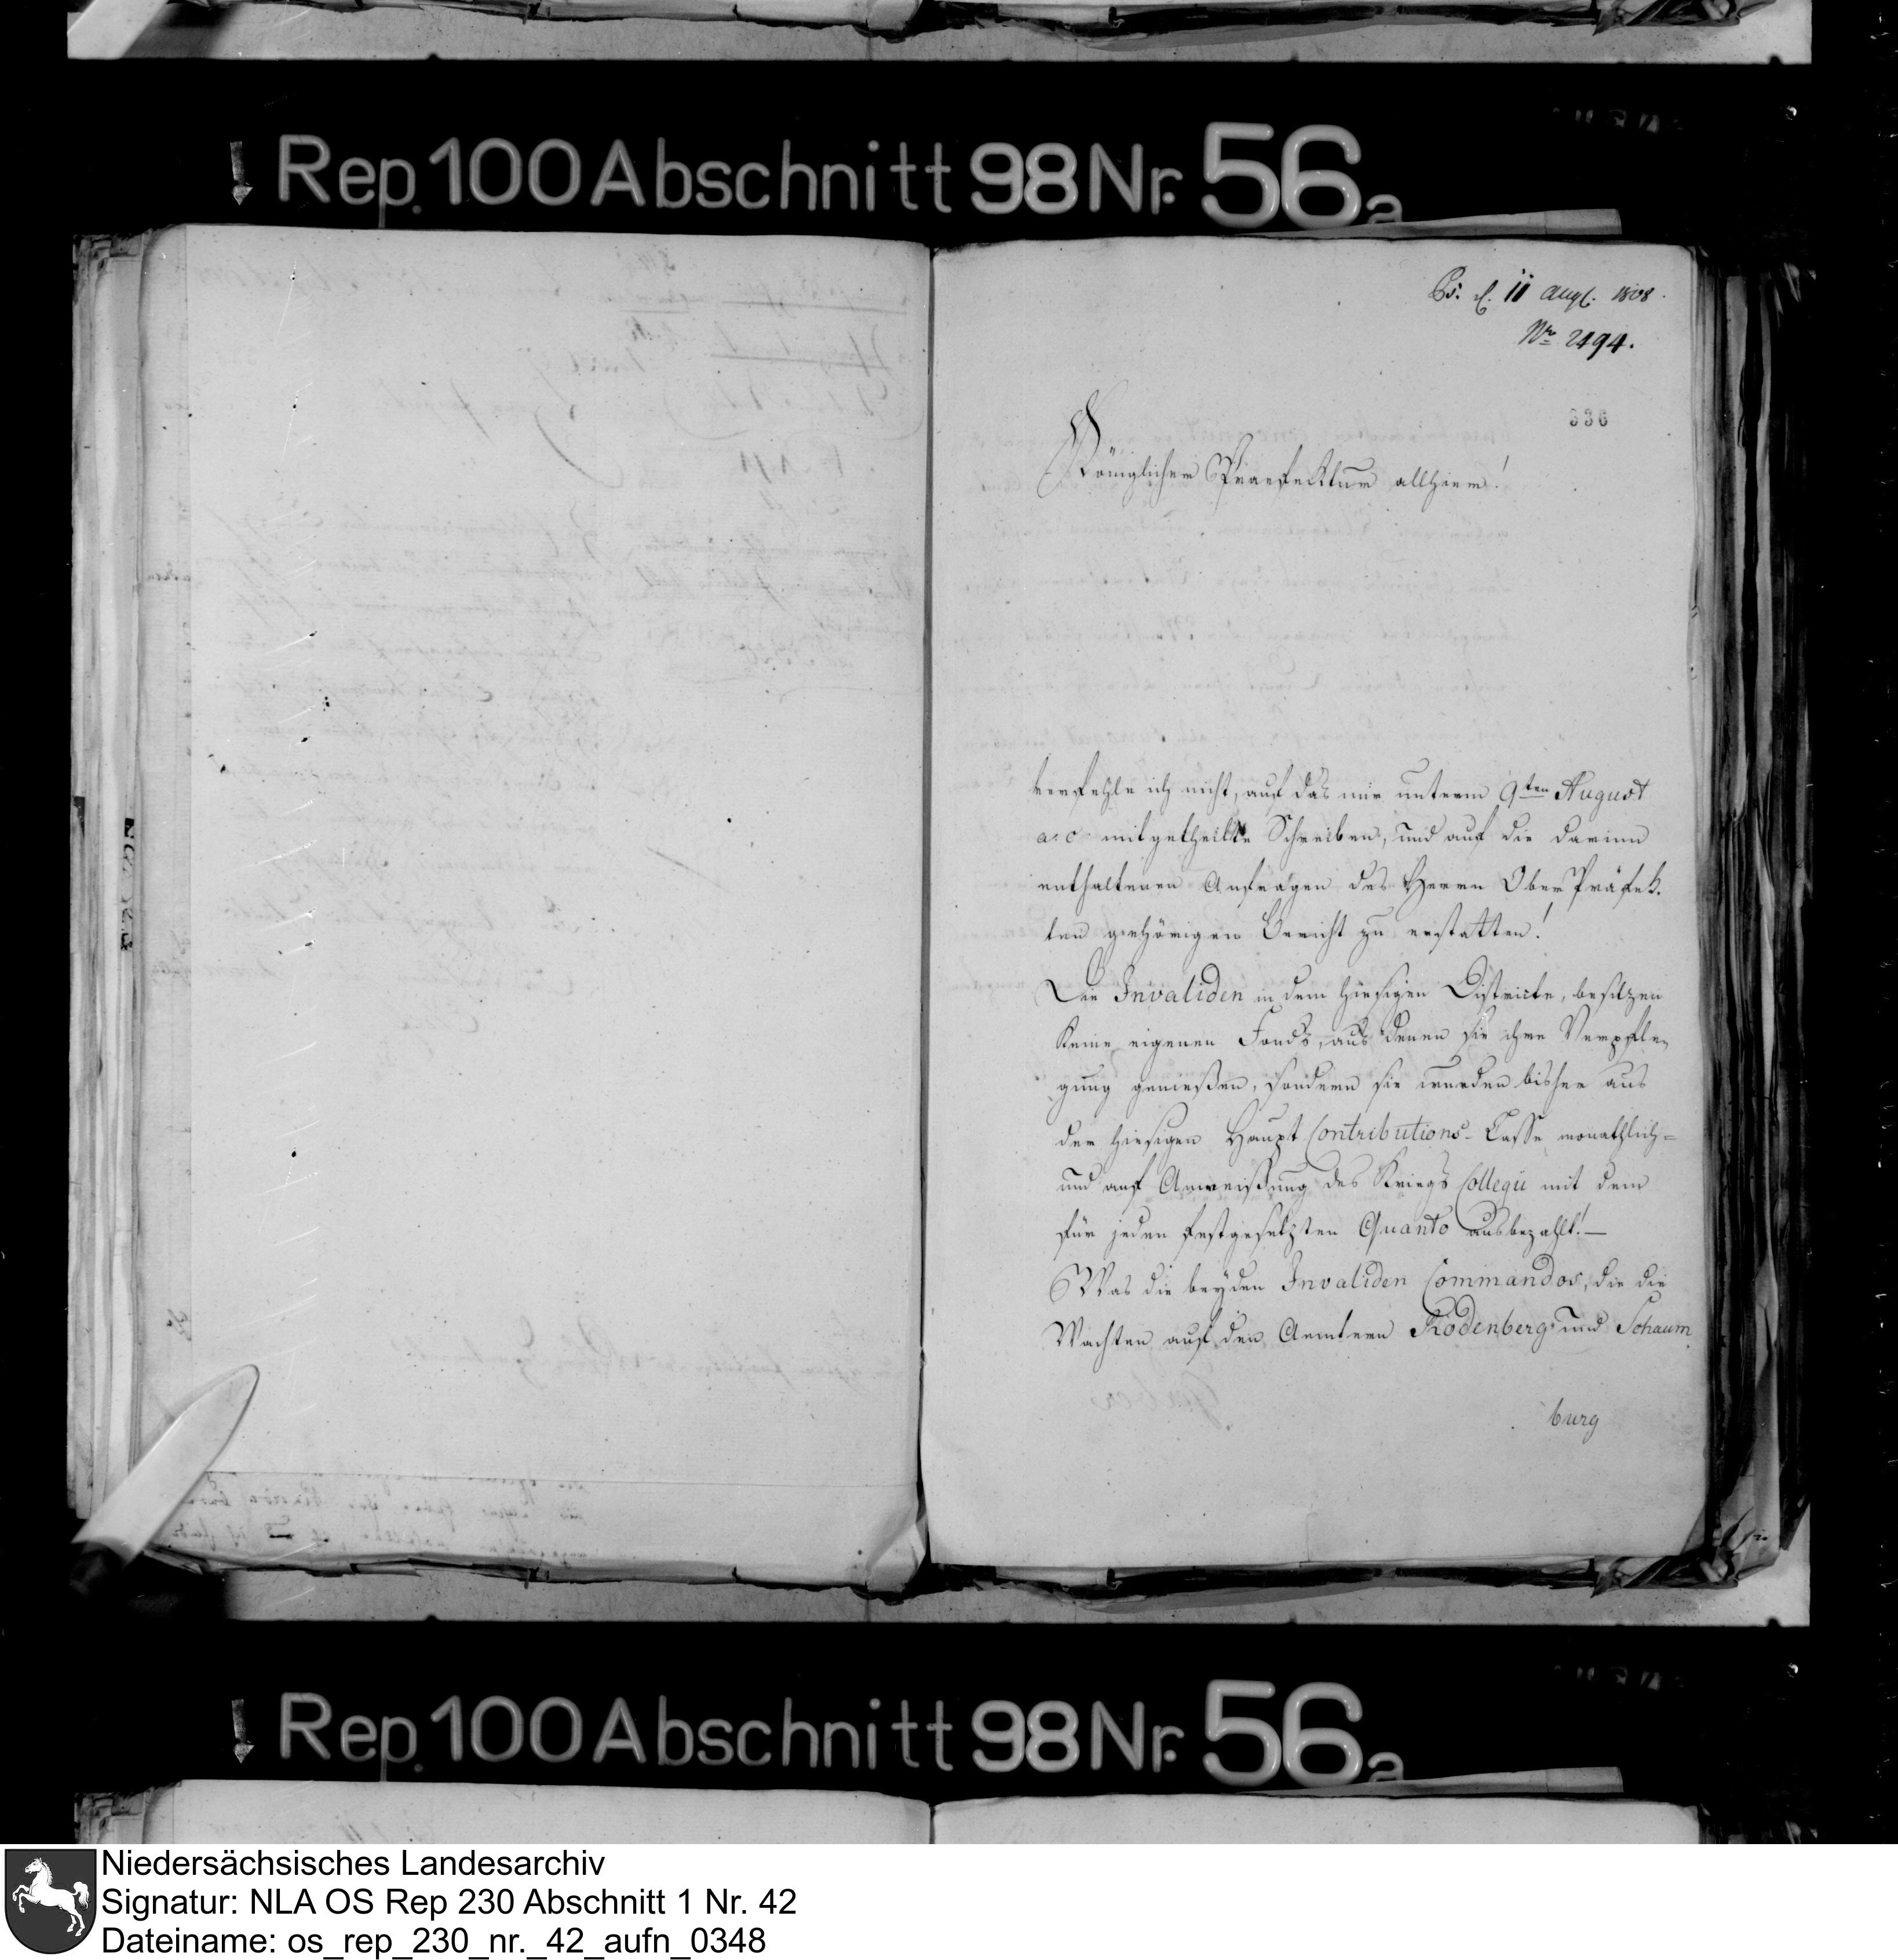 Rep. 100 Abschnitt 98 Nr. 56a
Ps. d. 11 Augt. 1808.
Nr 2494.
336
Königlicher Praefektur allhier!
verfehle ich nicht, auf das mir unterm 9ten August
a. c. mitgetheilte Schreiben, und auf die darinn
enthaltenen Anfragen des Herrn Ober Präfek-
ten gehörigen Bericht zu erstatten!
Die Invaliden in dem hiesigen Districte, besitzen
keine eigenen Fonds, aus denen sie ihre Verpfle-
gung genießen, sondern sie wurden bisher aus
der hiesigen Haupt Contributions-Casse monathlich-
und auf Anweißung des Kriegs Collegii mit dem
für jeden festgesetzten Quanto ausbezahlt! —
Was die beyden Invaliden Commandos, die die
Wachten auf den Aemtern Rodenberg und Schaum
burg
Rep. 100 Abschnitt 98 Nr. 56a
Niedersächsisches Landesarchiv
Signatur: NLA OS Rep 230 Abschnitt 1 Nr. 42
Dateiname: os_rep_230_nr._42_aufn_0348